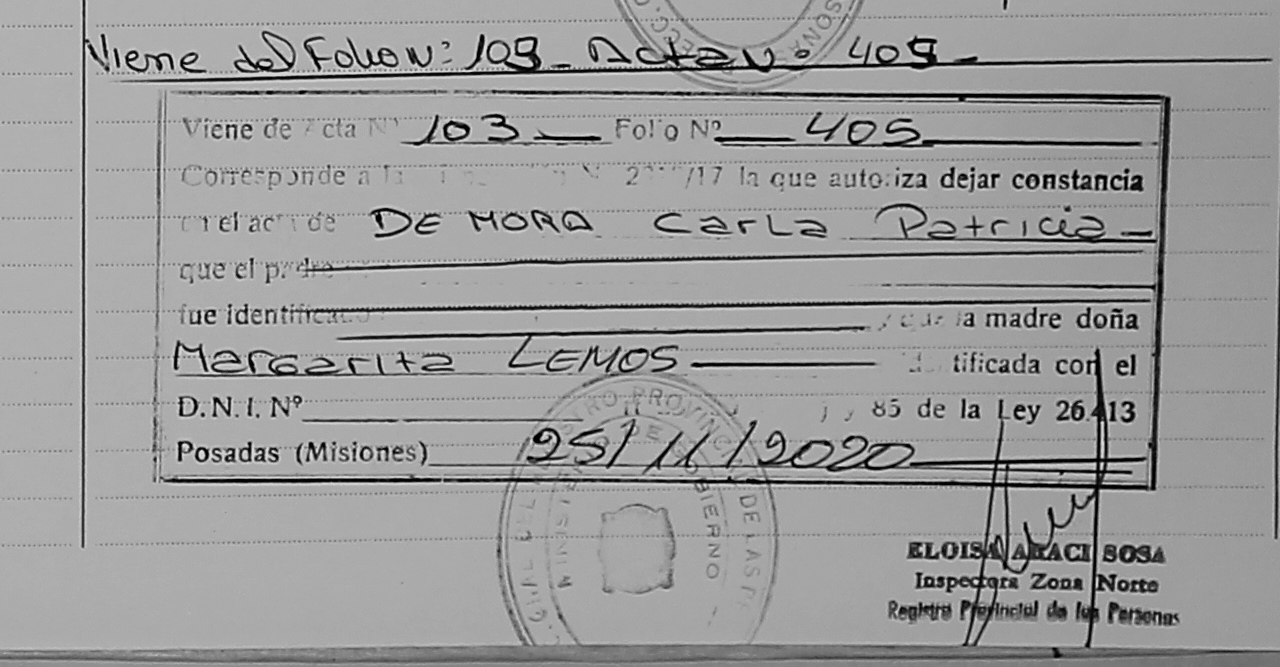 Viene del Folio Nº: 109 - Acta Nº 409 -
Viene de Acta Nº 103 Folio Nº 405
Corresponde a la /17 la que autoriza dejar constancia
en el acta de DE MORA Carla Patricia
que el padre
fue identificado y que la madre doña
Margarita LEMOS identificada con el
D.N.I. Nº 85 de la Ley 26.413
Posadas (Misiones) 25/11/2020
ELOISA ARACI SOSA
Inspectora Zona Norte
Registro Provincial de las Personas
PROVINCIAL DE LAS
GOBIERNO